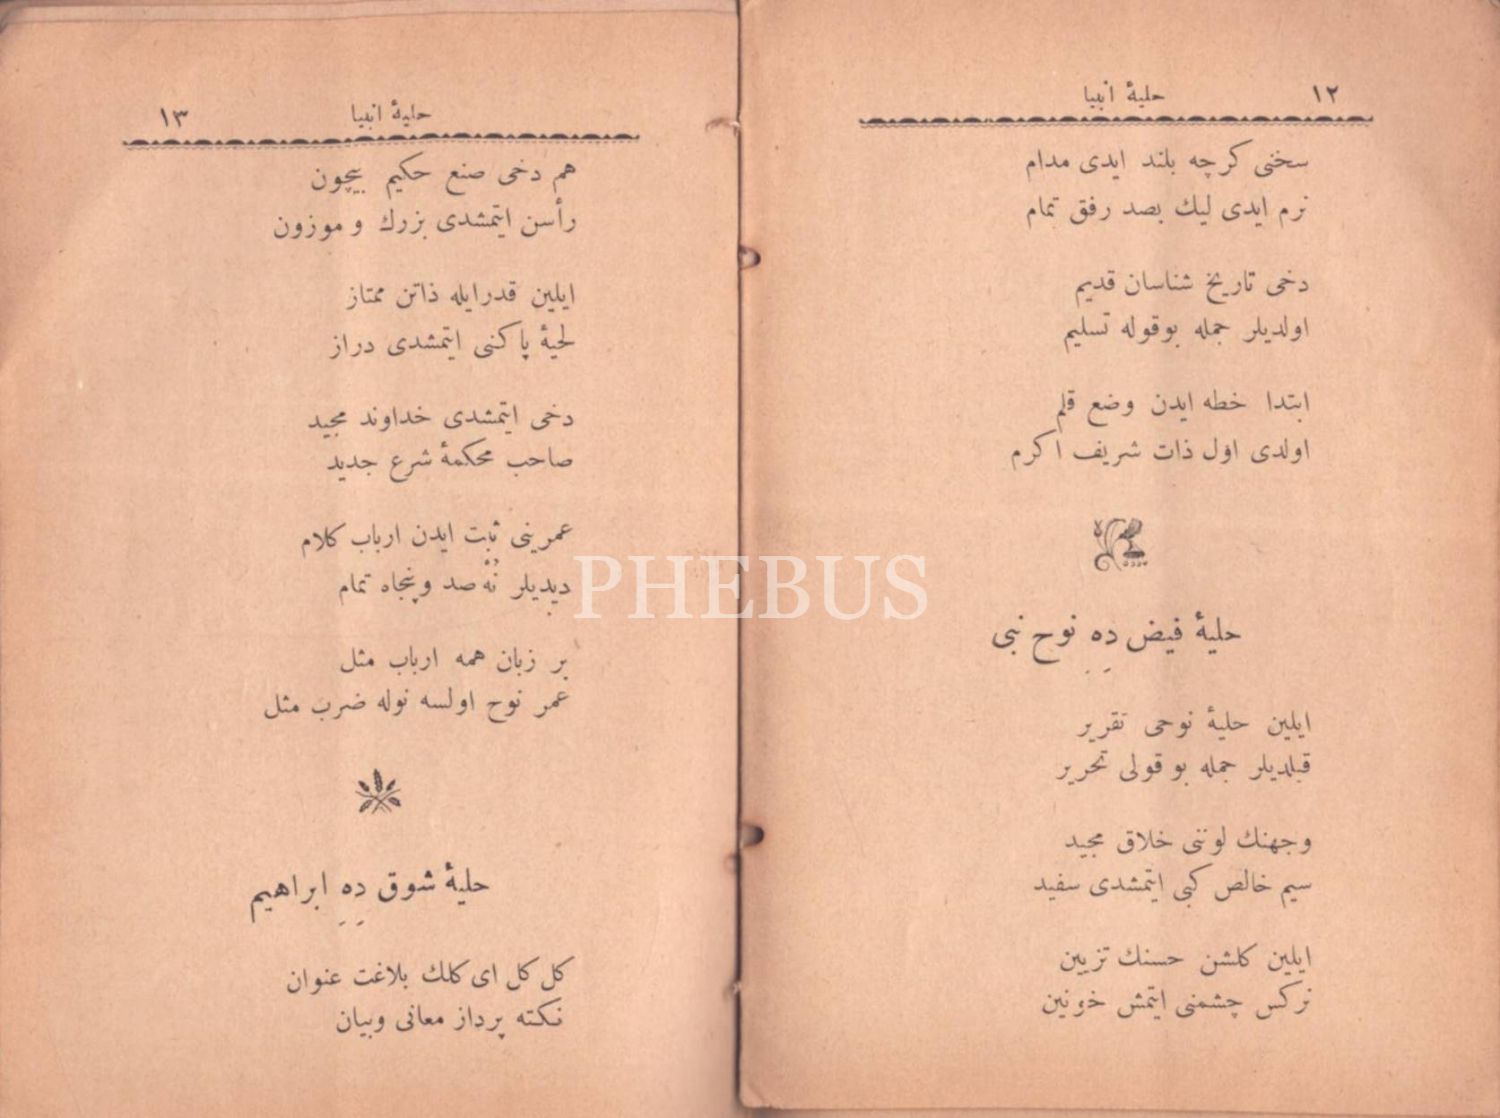 ١٢
حلیهٔ انبیا
سخنی کرچه بلند ایدی مدام
نرم ایدی لیك بصد رفق تمام
دخی تاریخ شناسان قدیم
اولدیلر جمله بوقوله تسلیم
ابتدا خطه ایدن وضع قلم
اولدی اول ذات شریف اکرم
حلیهٔ فیض دِهِ نوح نبی
ایلین حلیهٔ نوحی تقریر
قیلدیلر جمله بو قولی تحریر
وجهنك لوننی خلاق مجید
سیم خالص کبی ایتمشدی سفید
ایلین کلشن حسنك تزیین
نرکس چشمنی ایتمش خونین
حلیهٔ انبیا
١٣
هم دخی صنع حکیم بیچون
رأسن ایتمشدی بزرك و موزون
ایلین قدرایله ذاتن ممتاز
لحیهٔ پاکنی ایتمشدی دراز
دخی ایتمشدی خداوند مجید
صاحب محکمهٔ شرع جدید
عمرینی ثبت ایدن ارباب کلام
دیدیلر نُه صد وپنجاه تمام
بر زبان همه ارباب مثل
عمر نوح اولسه نوله ضرب مثل
حلیهٔ شوق دِهِ ابراهیم
کل کل ای کلك بلاغت عنوان
نکته پرداز معانی وبیان
PHEBUS